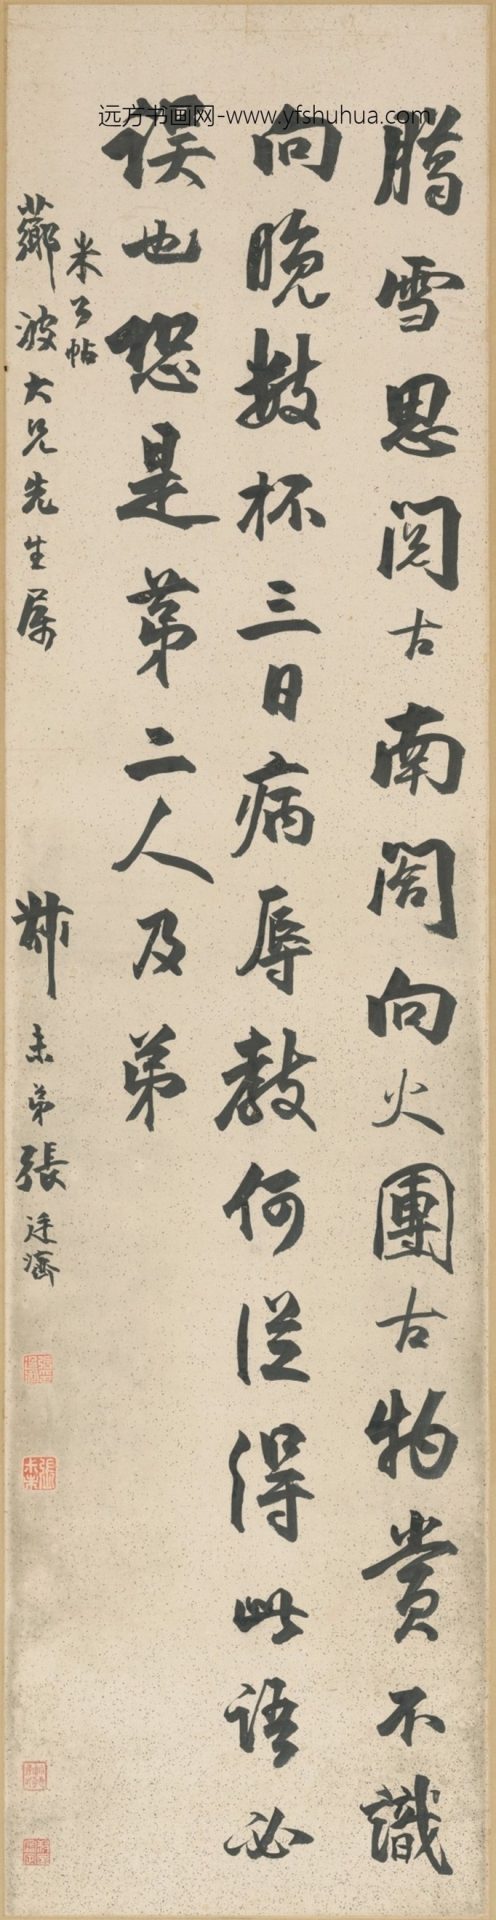 远方书画网-www.yfshuhua.com
臈雪思阅古南阁向火團古物赏不識
向晚数杯三日病辱教何従得此语必
误也恐是苐二人及弟
米公帖
薌波大兄先生属
未弟張廷濟